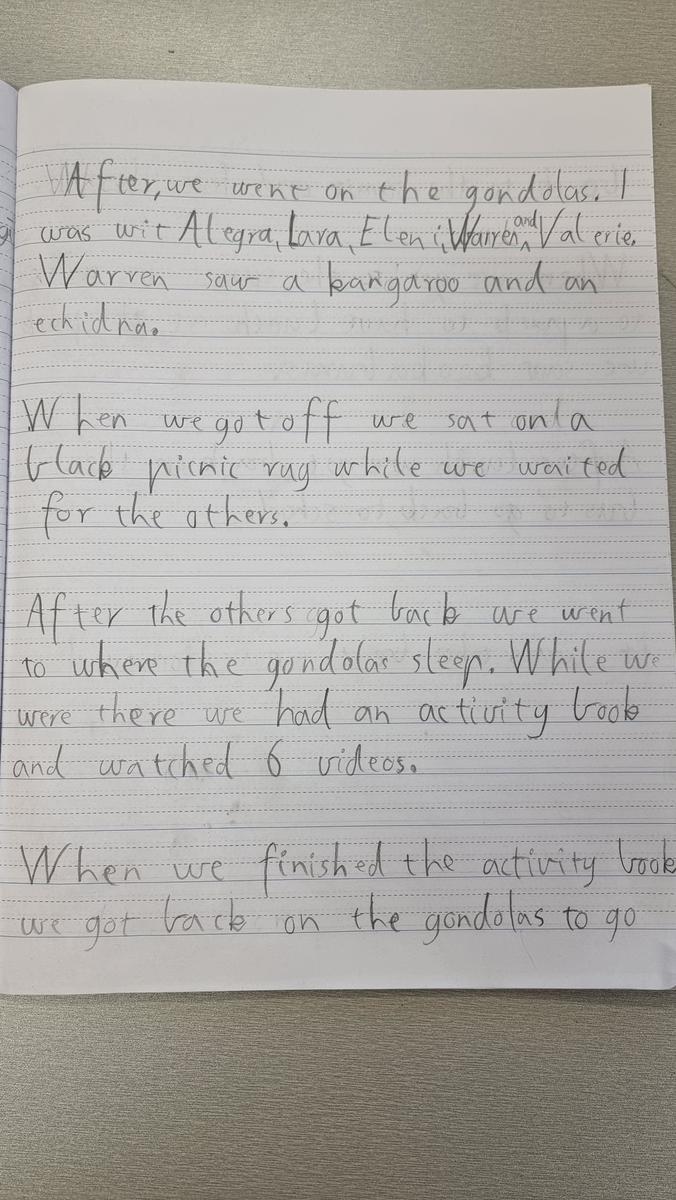 After, we went on the gondolas. I
was wit Alegra, Lara, Eleni, Warren, and Valerie.
Warren saw a kangaroo and an
echidna.
When we got off we sat on a
black picnic rug while we waited
for the others.
After the others got back we went
to where the gondolas sleep. While we
were there we had an activity book
and watched 6 videos.
When we finished the activity book
we got back on the gondolas to go